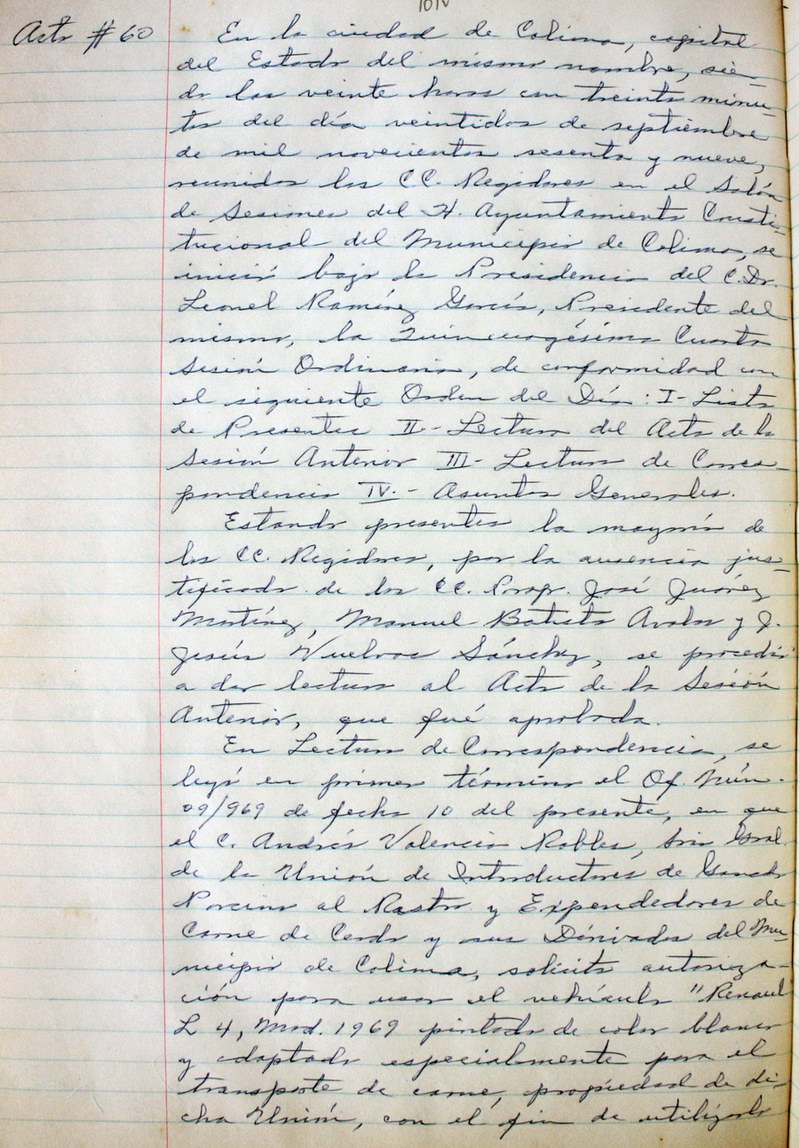 Acta # 60
En la ciudad de Colima, capital
del Estado del mismo nombre, sien-
do las veinte horas con treinta minu-
tos del día veintidos de septiembre
de mil novecientos sesenta y nueve,
reunidos los CC. Regidores en el Salón
de Sesiones del H. Ayuntamiento Consti-
tucional del Municipio de Colima, se
inició bajo la Presidencia del C. Dr.
Leonel Ramírez García, Presidente del
mismo, la Quincuagésima Cuarta
Sesión Ordinaria, de conformidad con
el siguiente Orden del Día: I- Lista
de Presentes II- Lectura del Acta de la
Sesión Anterior III- Lectura de Corres-
pondencia IV.- Asuntos Generales.
Estando presentes la mayoría de
los CC. Regidores, por la ausencia jus-
tificada de los CC. Prof. José Juárez
Martínez, Manuel Batista Avalos y J.
Jesús Vuelvas Sánchez, se procedió
a dar lectura al Acta de la Sesión
Anterior, que fué aprobada.
En Lectura de Correspondencia, se
leyó en primer término el Of. Núm.
09/969 de fecha 10 del presente, en que
el C. Andrés Valencia Robles, Srio Gral.
de la Unión de Introductores de Ganado
Porcino al Rastro y Expendedores de
Carne de Cerdo y sus Dérivados del Mu-
nicipio de Colima, solicita autoriza-
ción para usar el vehículo "Renault
L 4, Mod. 1969 pintado de color blanco
y adaptado especialmente para el
transporte de carne, propiedad de di-
cha Unión, con el fin de utilizarlo